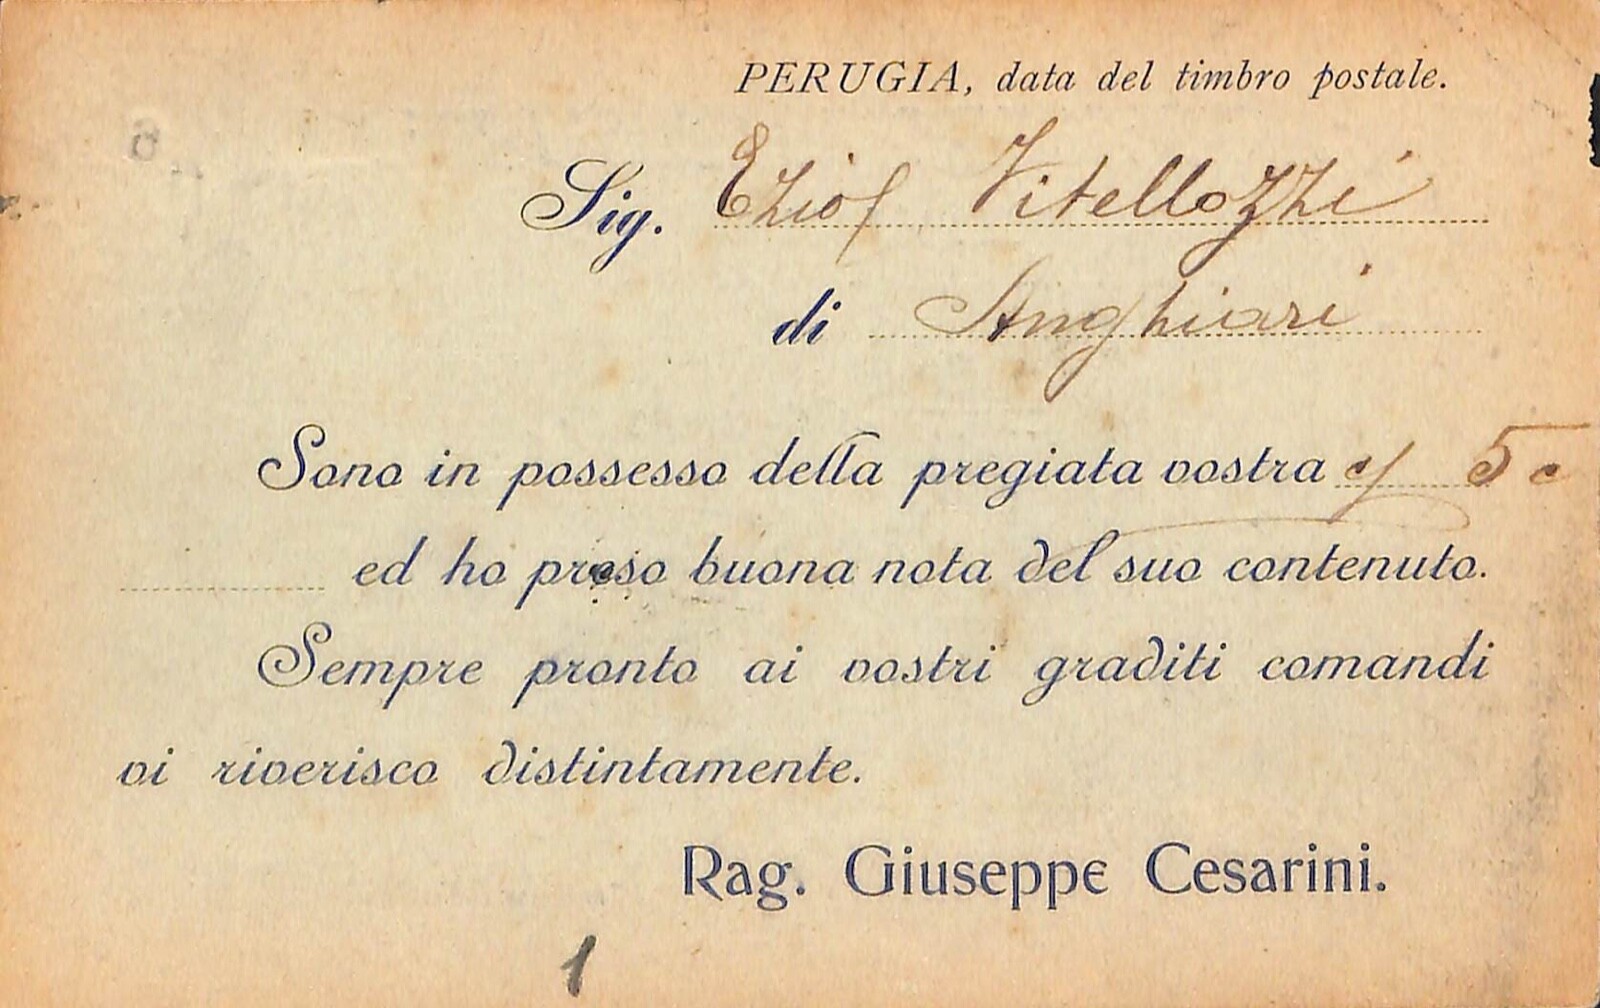 PERUGIA, data del timbro postale.
Sig. Vitellozzi
di Anghiari
Sono in possesso della pregiata vostra 5 c
ed ho preso buona nota del suo contenuto.
Sempre pronto ai vostri graditi comandi
vi riverisco distintamente.
Rag. Giuseppe Cesarini.
1